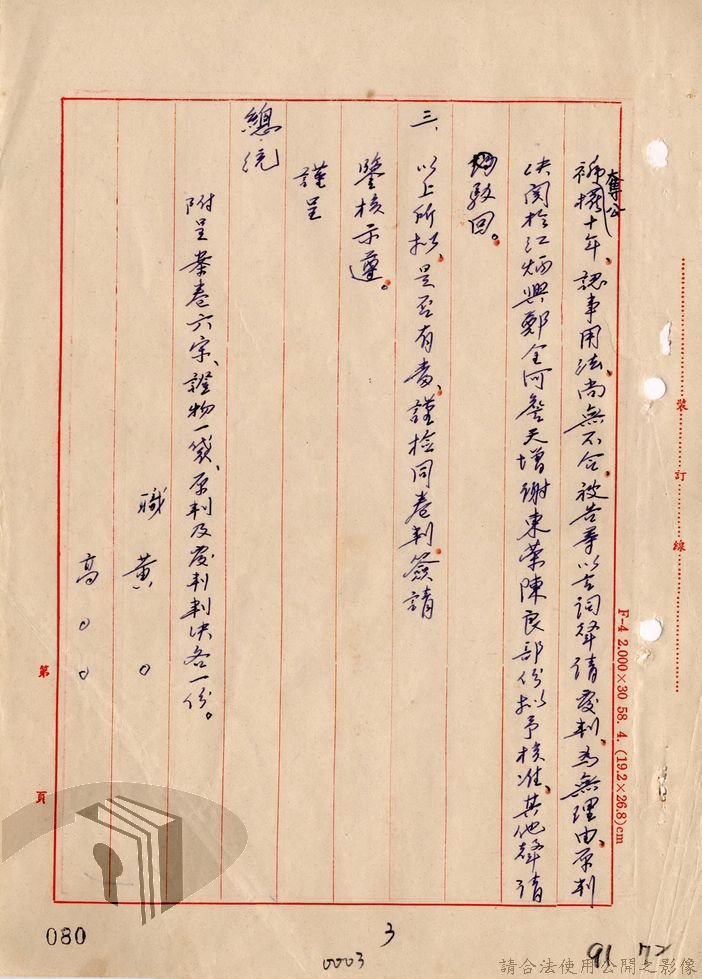 褫奪公權十年、認事用法、尚無不合、被告等以空詞聲請覆判、為無理由、原判
決関於江炳興鄭金河詹天增謝東榮陳良部份擬予核准、其他聲請
均駁回。
三、以上所擬、是否有當、謹檢同卷判簽請
鑒核示遵。
謹呈
總統
附呈案卷六宗、證物一袋、原判及覆判判決各一份。
職黃○
高○○
裝訂線
F-4 2.000×30 58. 4. (19.2×26.8)cm
第 頁
080
3
0003
91
72
請合法使用公開之影像